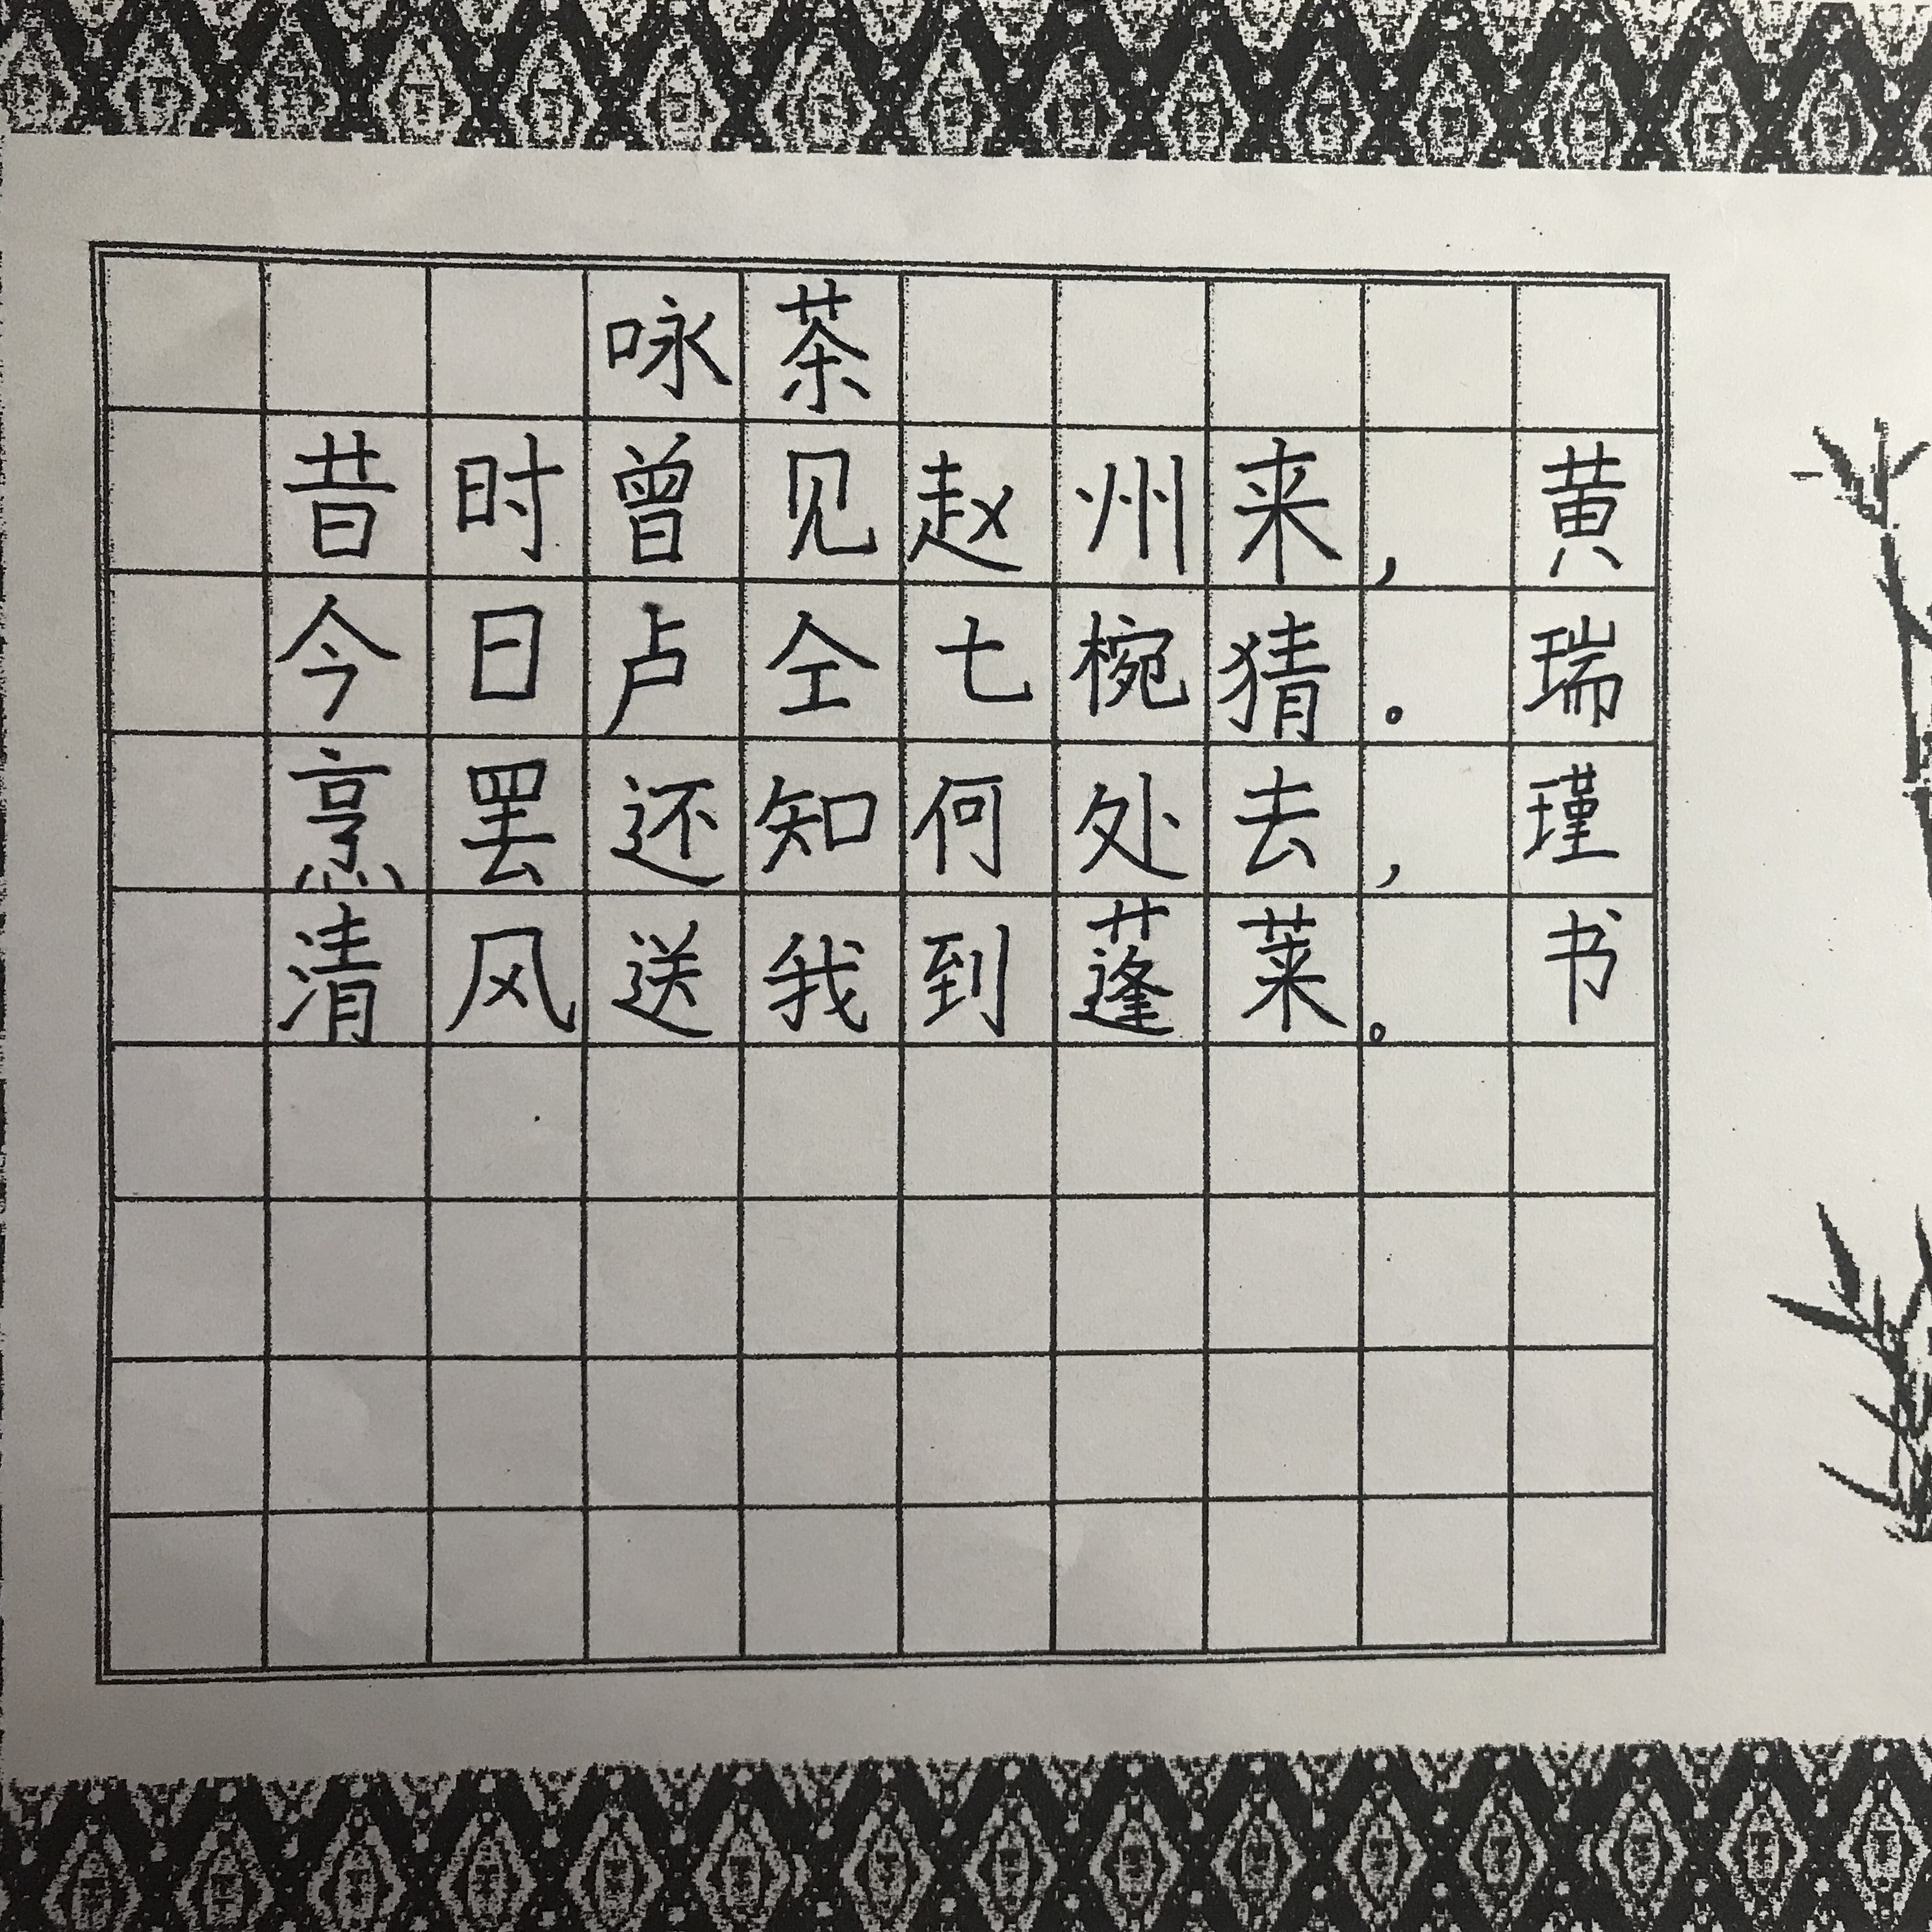 咏茶
昔时曾见赵州来，
今日卢仝七椀猜。
烹罢还知何处去，
清风送我到蓬莱。
黄瑞瑾书